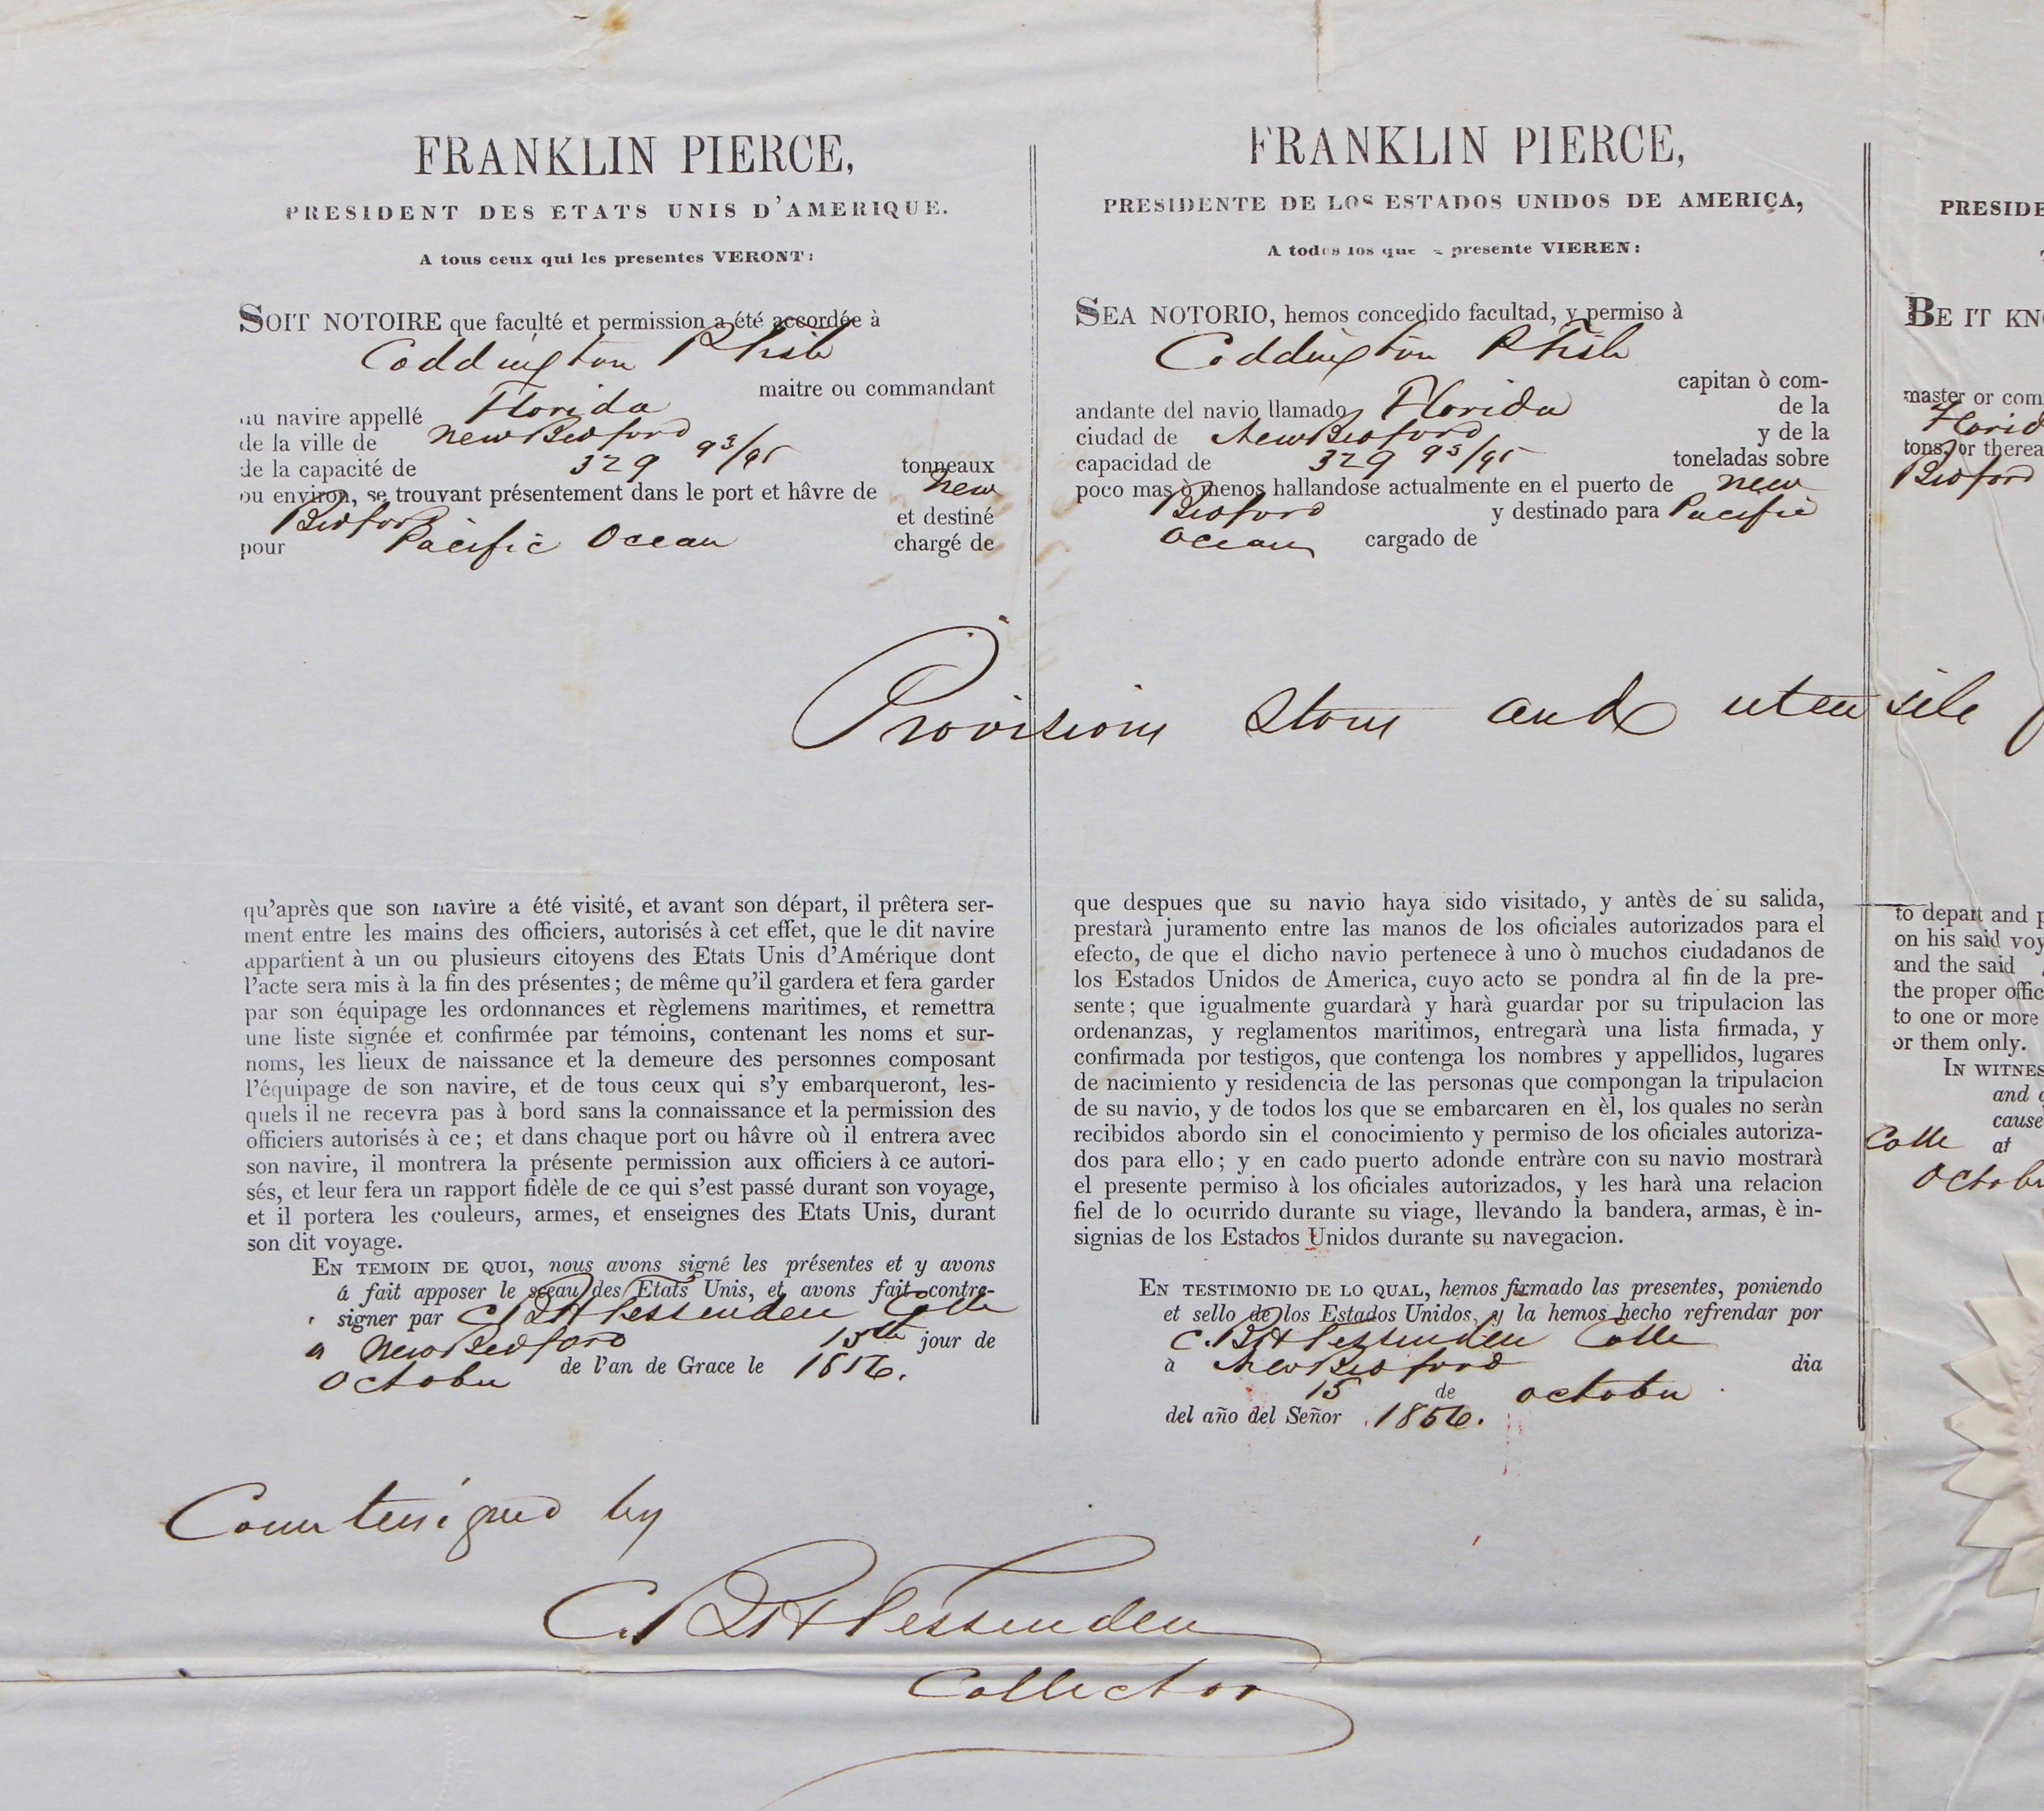 FRANKLIN PIERCE,
PRESIDENT DES ETATS UNIS D'AMERIQUE.
A tous ceux qui les presentes VERONT:
SOIT NOTOIRE que faculté et permission a été accordée à
Coddington P Fish
maitre ou commandant
au navire appellé Florida
de la ville de New Bedford
de la capacité de 329 93/95 tonneaux
ou environ, se trouvant présentement dans le port et hâvre de New
Bedford et destiné
pour Pacific Ocean chargé de
Provisions Stores and utensils
qu'après que son navire a été visité, et avant son départ, il prêtera ser-
ment entre les mains des officiers, autorisés à cet effet, que le dit navire
appartient à un ou plusieurs citoyens des Etats Unis d'Amérique dont
l'acte sera mis à la fin des présentes; de même qu'il gardera et fera garder
par son équipage les ordonnances et règlemens maritimes, et remettra
une liste signée et confirmée par témoins, contenant les noms et sur-
noms, les lieux de naissance et la demeure des personnes composant
l'équipage de son navire, et de tous ceux qui s'y embarqueront, les-
quels il ne recevra pas à bord sans la connaissance et la permission des
officiers autorisés à ce; et dans chaque port ou hâvre où il entrera avec
son navire, il montrera la présente permission aux officiers à ce autori-
sés, et leur fera un rapport fidèle de ce qui s'est passé durant son voyage,
et il portera les couleurs, armes, et enseignes des Etats Unis, durant
son dit voyage.
EN TEMOIN DE QUOI, nous avons signé les présentes et y avons
á fait apposer le sceau des Etats Unis, et avons fait contre-
signer par C B H Fessenden Colle
a New Bedford 15th jour de
October de l'an de Grace le 1856.
FRANKLIN PIERCE,
PRESIDENTE DE LOS ESTADOS UNIDOS DE AMERICA,
A todos los que presente VIEREN:
SEA NOTORIO, hemos concedido facultad, y permiso à
Coddington P Fish
capitan ò com-
andante del navio llamado Florida de la
ciudad de New Bedford y de la
capacidad de 329 93/95 toneladas sobre
poco mas ò menos hallandose actualmente en el puerto de New
Bedford y destinado para Pacific
Ocean cargado de
que despues que su navio haya sido visitado, y antès de su salida,
prestarà juramento entre las manos de los oficiales autorizados para el
efecto, de que el dicho navio pertenece à uno ò muchos ciudadanos de
los Estados Unidos de America, cuyo acto se pondra al fin de la pre-
sente; que igualmente guardarà y harà guardar por su tripulacion las
ordenanzas, y reglamentos maritimos, entregarà una lista firmada, y
confirmada por testigos, que contenga los nombres y appellidos, lugares
de nacimiento y residencia de las personas que compongan la tripulacion
de su navio, y de todos los que se embarcaren en èl, los quales no seràn
recibidos abordo sin el conocimiento y permiso de los oficiales autoriza-
dos para ello; y en cado puerto adonde entràre con su navio mostrarà
el presente permiso à los oficiales autorizados, y les harà una relacion
fiel de lo ocurrido durante su viage, llevando la bandera, armas, è in-
signias de los Estados Unidos durante su navegacion.
EN TESTIMONIO DE LO QUAL, hemos firmado las presentes, poniendo
et sello de los Estados Unidos, y la hemos hecho refrendar por
C. B H Fessenden Colle
à New Bedford dia
15 de October
del año del Señor 1856.
PRESIDE
BE IT KN
master or com
Florid
tons, or therea
Bedford
to depart and p
on his said voy
and the said
the proper offic
to one or more
or them only.
IN WITNES
and
cause
Colle at
Octob
Countersigned by
C. B H Fessenden
Collector